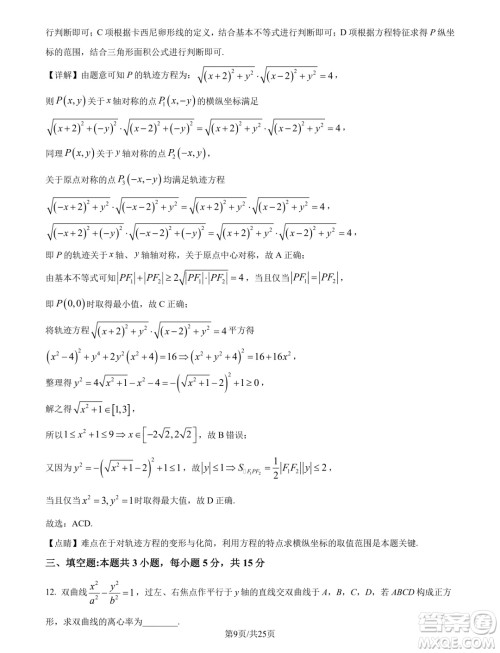 行判断即可；C 项根据卡西尼卵形线的定义，结合基本不等式进行判断即可；D 项根据方程特征求得 P 纵坐
标的范围，结合三角形面积公式进行判断即可.
【详解】由题意可知 P 的轨迹方程为：√((x+2)²+y²)·√((x−2)²+y²)=4，
则 P(x,y) 关于 x 轴对称的点 P₁(x,−y) 的横纵坐标满足
√((x+2)²+(−y)²)·√((x−2)²+(−y)²)=√((x+2)²+y²)·√((x−2)²+y²)=4，
同理 P(x,y) 关于 y 轴对称的点 P₂(−x,y)，
关于原点对称的点 P₃(−x,−y) 均满足轨迹方程
√((−x+2)²+y²)·√((−x−2)²+y²)=√((x+2)²+y²)·√((x−2)²+y²)=4，
√((−x+2)²+(−y)²)·√((−x−2)²+(−y)²)=√((x+2)²+y²)·√((x−2)²+y²)=4，
即 P 的轨迹关于 x 轴、y 轴轴对称，关于原点中心对称，故 A 正确；
由基本不等式可知|PF₁|+|PF₂|≥2√(|PF₁|·|PF₂|)=4，当且仅当|PF₁|=|PF₂|，
即 P(0,0) 时取得最小值，故 C 正确；
将轨迹方程√((x+2)²+y²)·√((x−2)²+y²)=4 平方得
(x²−4)²+y⁴+2y²(x²+4)=16⇒(x²+y²+4)²=16+16x²，
整理得 y²=4√(x²+1)−x²−4=−(√(x²+1)−2)²+1≥0，
解之得√(x²+1)∈[1,3]，
所以1≤x²+1≤9⇒x∈[−2√2,2√2]，故 B 错误；
又因为 y²=−(√(x²+1)−2)²+1≤1，故|y|≤1⇒S_{△F₁PF₂}=½|F₁F₂||y|≤2，
当且仅当 x²=3,y²=1 时取得最大值，故 D 正确.
故选：ACD.
【点睛】难点在于对轨迹方程的变形与化简，利用方程的特点求出横纵坐标的取值范围是本题关键.
三、填空题:本题共 3 小题，每小题 5 分，共 15 分
12. 双曲线x²/a²−y²/b²=1，过左、右焦点作平行于 y 轴的直线交双曲线于 A，B，C，D，若 ABCD 构成正方
形，求双曲线的离心率为________.
第9页/共25页